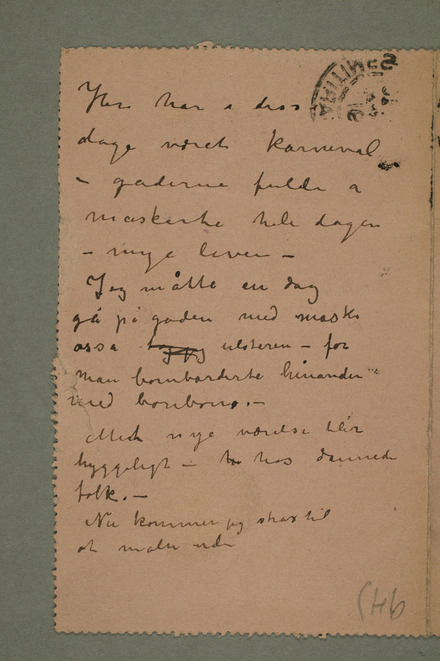 Her har i disse
dage været karneval
– gaderne fulde a
maskerte hele dagen
– mye leven –
Jeg måtte en dag
gå på gaden med maske
assa ulsteren – for
man bombarderte hinanden
med bonbons. –
Mit nye værelse blir
hyggeligt – hos dannede
folk. –
Nu kommer jeg strax til
at male ude